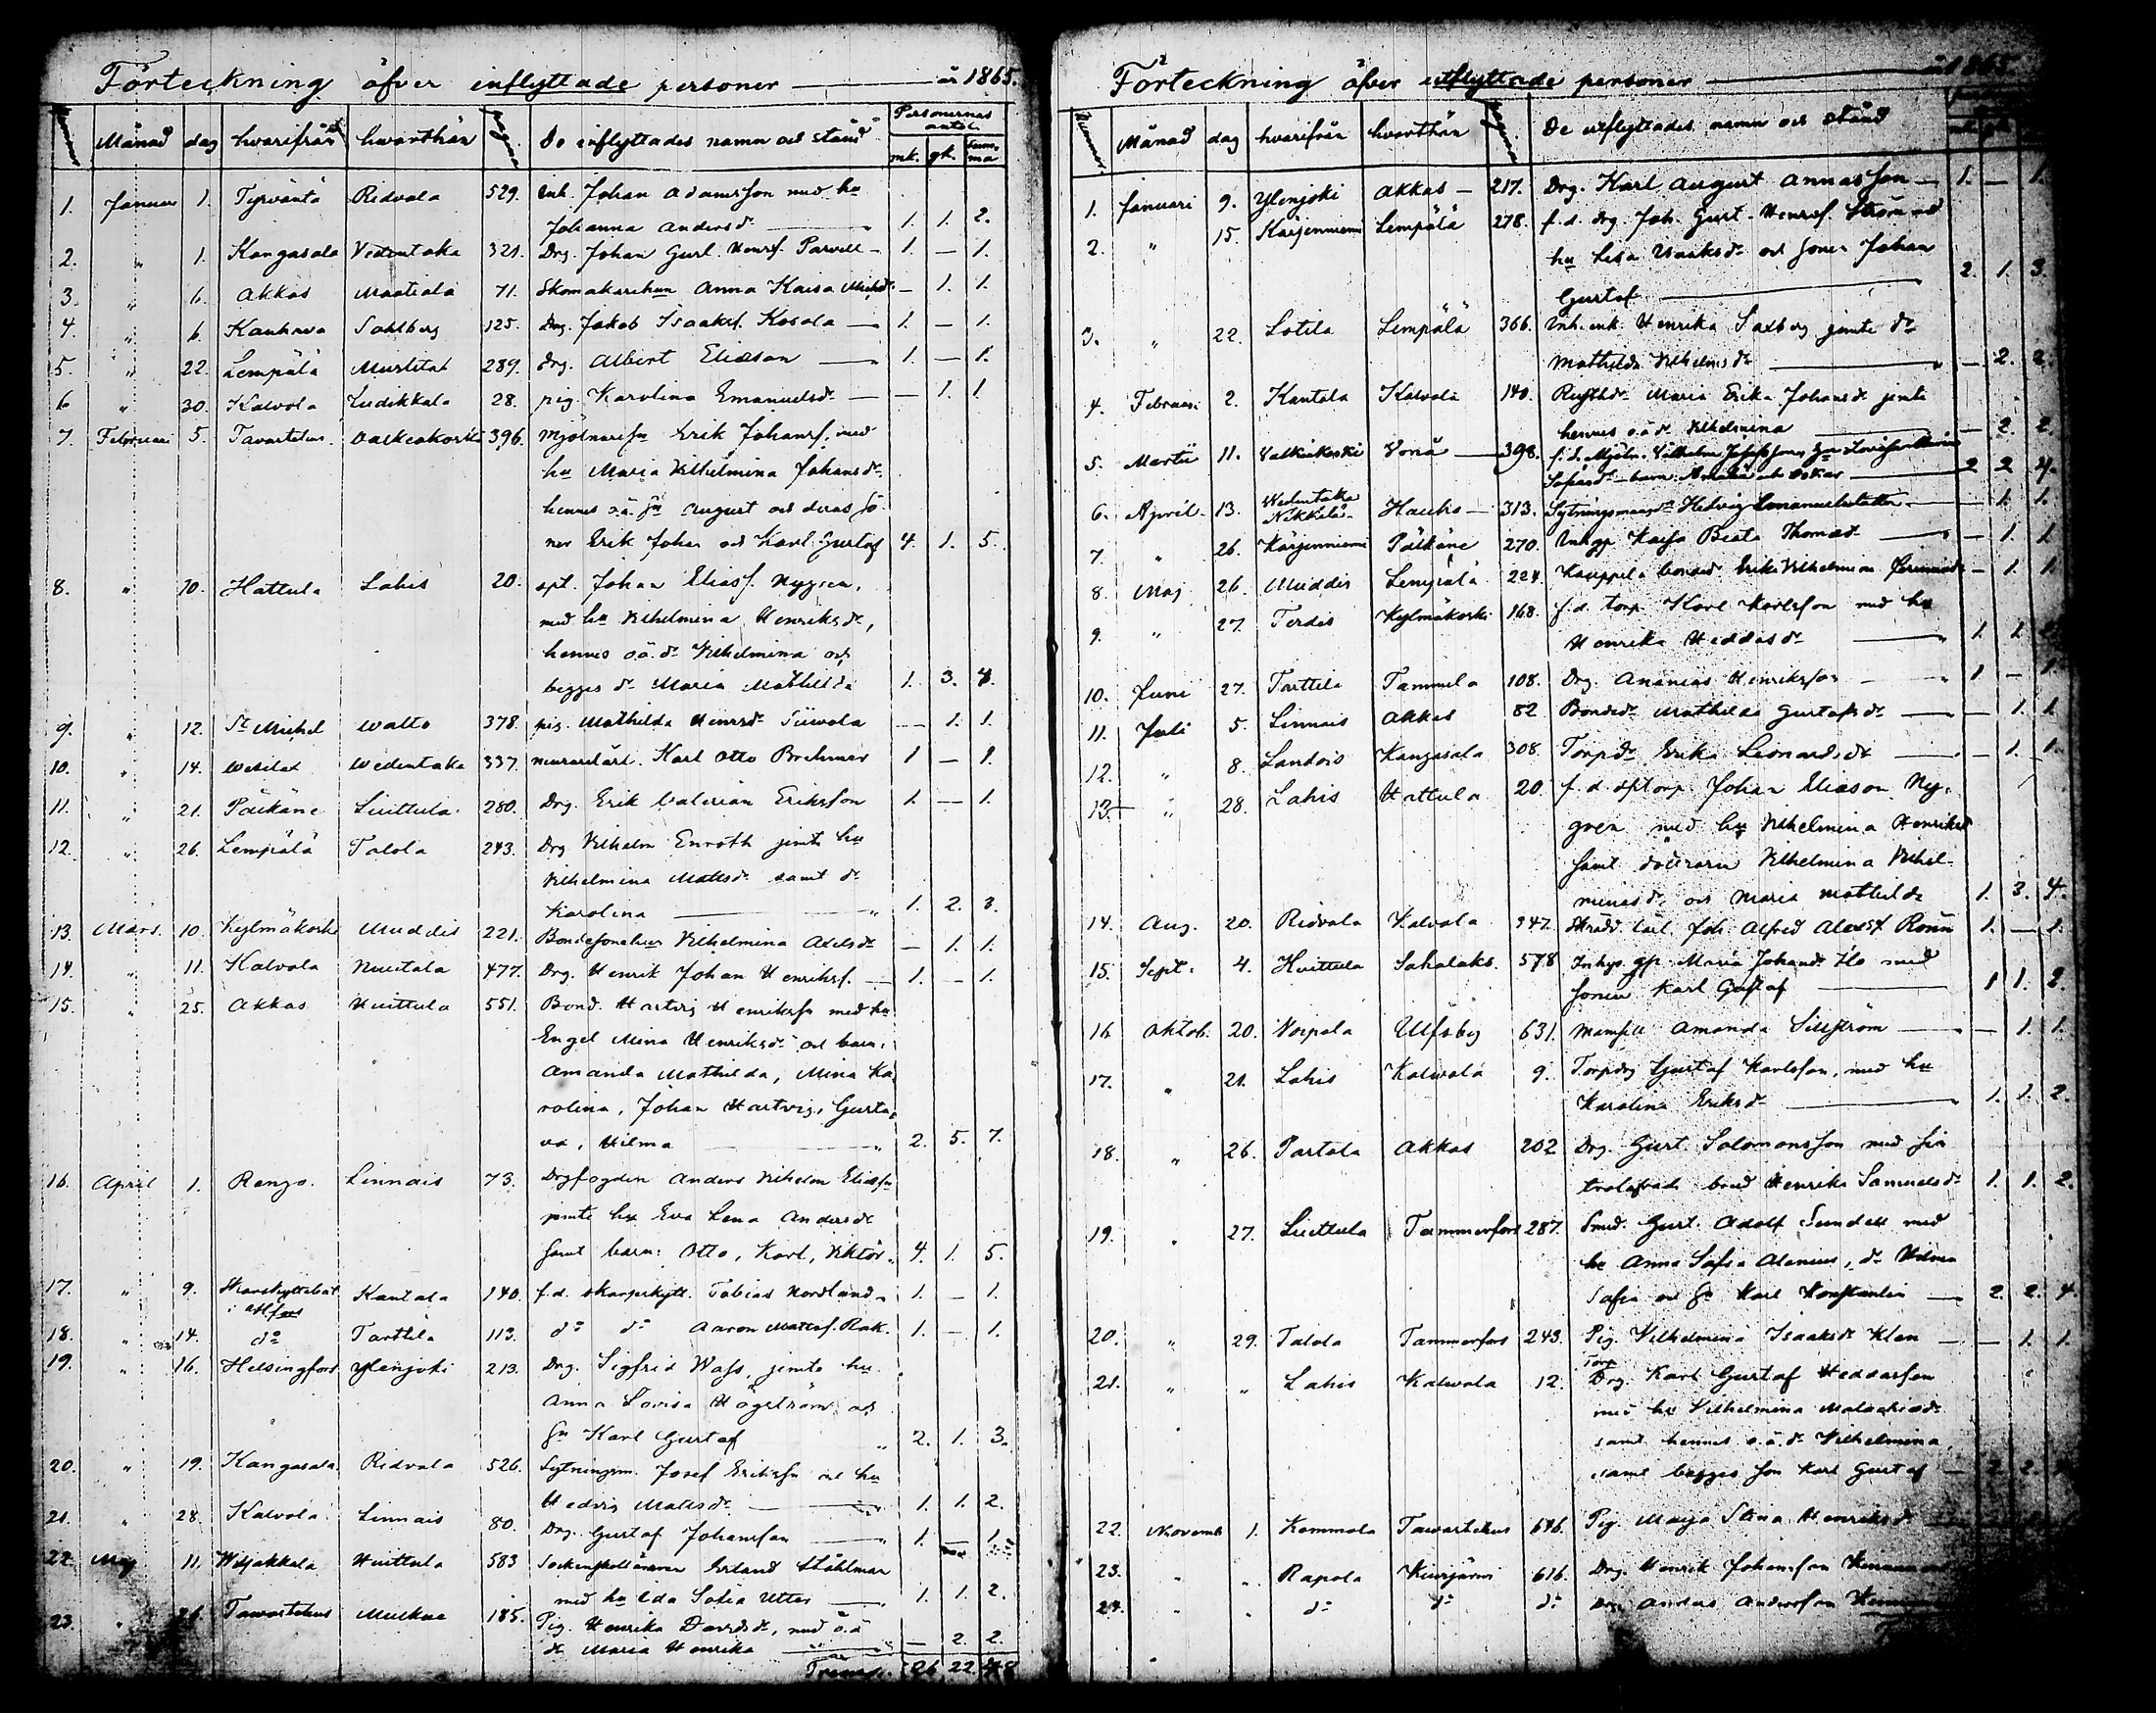 Förteckning öfver inflyttade personer — år 1865.
Månad dag hvarifrån hvarthän De inflyttades namn och stånd Personernas antal
mk. qk. Summa
1. Januari 1. Tyrväntö Ridvala 529. Johan Adamsson med hu
Johanna Andersd. 1. 1. 2.
2. " 1. Kangasala Vedentaka 321. Drg. Johan Gust. Henrsf. Parvell 1. — 1.
3. " 6. Akkas Maatiala 71. Skomakarehun Anna Kaisa — 1. 1.
4. " 6. Kauhava Sahlberg 125. Drg. Jakob Isaaksf. Kosola 1. — 1.
5. " 22. Lempälä 289. Drg. Albert Eliasson 1. — 1.
6. " 30. Kalvola Ludikkala 28. pig. Karolina Emanuelsd. — 1. 1.
7. Februari 5. Tavastehus Valkeakoski 396. Mjölnaresn Erik Johansf. med
hu Maria Vilhelmina Johansd.
hennes o.ä. sn August och deras sö-
ner Erik Johan och Karl Gustaf 4. 1. 5.
8. " 10. Hattula Lahis 20. spt. Johan Eliasf. Nygren,
med hu Vilhelmina Henriksd.,
hennes o.ä. dr Vilhelmina och
begges dr Maria Mathilda 1. 3. 4.
9. " 12. St Michel Walto 378. pig. Mathilda Henrsd. Siivola — 1. 1.
10. " 14. Wesilax Wedentaka 337. murarelärl. Karl Otto 1 — 1.
11. " 21. Pälkäne Liuttula 280. Drg. Erik Valerian Eriksson 1. — 1.
12. " 26. Lempälä Talola 243. Drg Vilhelm Enroth jemte hu
Vilhelmina Mattsdr samt dr
Karolina 1. 2. 3.
13. Mars. 10. Kylmäkoski Muddis 221. Bondesonehun Vilhelmina Axelsdr — 1. 1.
14. " 11. Kalvola 477. Drg. Henrik Johan Henriksf. 1. — 1.
15. " 25. Akkas Huittula 551. Bond. Hartvig Henriksson med hu
Engel Mina Henriksd. och barn:
Amanda Mathilda, Mina Ka-
rolina, Johan Hartvig, Gusta-
va, Hilma 2. 5. 7.
16. April 1. Rengo. Linnais 73. Drgfogden Anders Vilhelm Eliassn
jemte hu Eva Lena Andersdr
samt barn: Otto, Karl, Viktor 4. 1. 5.
17. " 9. Skarpskyttebat. i Åbo Kantala 140. f.d. skarpskytt. Tobias Nordlund 1. — 1.
18. " 14. do Tarttila 113. do do Aaron Mattsf. Rak. 1. — 1.
19. " 16. Helsingfors Ylenjoki 213. Drg. Sigfrid Wass, jemte hu
Anna Lovisa Högström och
sn Karl Gustaf 2. 1. 3.
20. " 19. Kangasala Ridvala 526. Sytningsm. Josef Eriksson och hu
Hedvig Mattsdr 1. 1. 2.
21. " 28. Kalvola Linnais 80. Drg. Gustaf Johansson 1. — 1.
22. Maj 11. Huittula 583 Sockenskolläraren Erland Ståhlman
med hu Ida Sofia Utter 1. 1. 2.
23. " 26. Tavastehus 185. Pig. Henrika Davidsdr, med o.ä.
dr Maria Henrika — 2. 2.
Transp. 26 22 48
Förteckning öfver utflyttade personer — år 1865
Månad dag hvarifrån hvarthän De utflyttades namn och stånd
1. Januari 9. Ylenjoki Akkas 217. Drg. Karl August Annasson 1. — 1.
2. " 15. Karjenniemi Lempälä 278. f.d. drg. Joh. Gust. Henrsf. Ström med
hu Lisa Isaaksdr och sonen Johan
Gustaf 2. 1. 3.
3. " 22. Lotila Lempälä 366. Inh. enk. Henrika Saxberg jemte dr
Mathilda Vilhelmsdr — 2. 2.
4. Februari 2. Kantala Kalvola 140. Maria Erika Johansdr jemte
hennes o.ä. dr Vilhelmina — 2. 2.
5. Martii 11. Valkiakoski Vorå 398. f.d. Mjöln. Vilhelm Josefsson,
barn: Amalia och Oskar 2 2 4.
6. April 13. Wedentaka Nikkilä Hauho 313. Sytningsmansdr Hedvig Emanuelsdotter 1. 1.
7. " 26. Karjenniemi Pälkäne 270. Inhqp Kajsa Beata Thomasd. — 1. 1.
8. Maj 26. Muddis Lempälä 224. Kauppila bonded. Erika Vilhelmina — 1. 1.
9. " 27. Terdis Kylmäkoski 168. f.d. torp. Karl Karlsson med hu
Henrika Heddasdr 1. 1. 2.
10. Juni 27. Tarttila Tammela 108. Drg. Ananias Henriksson 1 — 1.
11. Juli 5. Linnais Akkas 82 Bondedr Mathilda Gustafsdr — 1. 1
12. " 8. Landois Kangasala 308. Torpdr Erika Leonardsdr — 1. 1.
13. " 28. Lahis Hattula 20. f.d. sptorp. Johan Eliasson Ny-
gren med hu Vilhelmina Henriksd
samt döttrarne Vilhelmina Vilhel-
minasdr och Maria Mathilda 1. 3. 4.
14. Aug. 20. Ridvala Kalvola 347. Skrädd. lärl. Joh. Alfred Alexsf. Rönn 1. — 1.
15. Sept. 4. Huittula Sahalaks. 578 Inhys. qp. Maria Johansd. Ilo med
sonen Karl Gustaf 1 1. 2.
16 Oktob. 20. Voipala Ulfsby 631. Mamsell Amanda Sillström — 1. 1.
17. " 21. Lahis Kalvola 9. Torpdrg Gustaf Karlsson, med hu
Karolina Eriksdr 1. 1. 2.
18. " 26. Partala Akkas 202 Drg. Gust. Salomonsson med sin
trolofvade brud Henrika Samuelsdr 1. 1. 2.
19. " 27. Liuttula Tammerfors 287. Smed. Gust. Adolf Sundell med
hu Anna Sofia Alenius, dr Hilma
Sofia och sn Karl Konstantin 2. 2. 4
20. " 29. Talola Tammerfors 243. Pig. Vilhelmina Isaaksdr Klen — 1. 1.
21. " " Lahis Kalvola 12. Torp Drg. Karl Gustaf Heddasson
med hu Vilhelmina Malakiasdr
samt hennes o.ä. dr Vilhelmina,
samt begges son Karl Gustaf 2. 2.
22. Novemb 1. Kemmola Tavastehus 646. Pig. Maija Stina Henriksd
23. " " Rapola 616. Drg. Henrik Johansson
24. " " do do do Drg. Anders Andersson